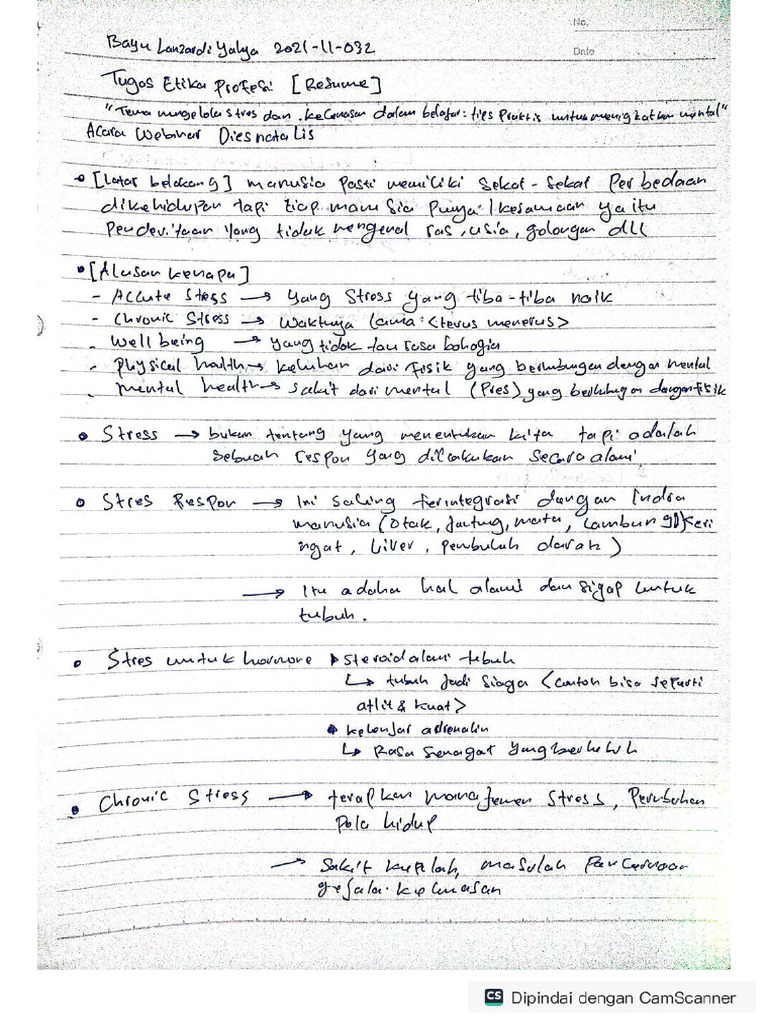 No.
Bayu Lanzardi Yahya 2021-11-032
Date
Tugas Etika Profesi [Resume]
"Tema mengelola stres dan kecemasan dalam belajar: tips praktis untuk menigkatkan mental"
Acara Webinar Diesnatalis
[Latar belakang] manusia pasti memiliki sekat-sekat perbedaan
dikehidupan tapi tiap manusia punya 1 kesamaan yaitu
penderitaan yang tidak mengenal ras, usia, golongan dll
[Alasan kenapa]
- Accute stress → yang stress yang tiba-tiba naik
- Chronic stress → waktunya lama <terus menerus>
- Well being → yang tidak tau rasa bahagia
- physical health → keluhan dari fisik yang berhubungan dengan mental
- mental health → sakit dari mental (Pres) yang berhubungan dengan fisik
Stress → bukan tentang yang menentukan kita tapi adalah
sebuah respon yang dilakukan secara alami
Stres Respon → Ini saling terintegrasi dengan Indra
manusia (otak, jantung, mata, lambung, keri
ngat, Liver, pembuluh darah)
→ Itu adalah hal alami dan sigap untuk
tubuh.
Stres untuk hormone steroid alami tubuh
↳ tubuh jadi siaga <contoh bisa seperti
atlit & kuat>
kelenjar adrenalin
↳ Rasa semagat yang
Chronic Stress → terapkan manajemen stress, perubahan
Pola hidup
→ Sakit kepalah, masalah pencernaan
gejala kecemasan
CS Dipindai dengan CamScanner